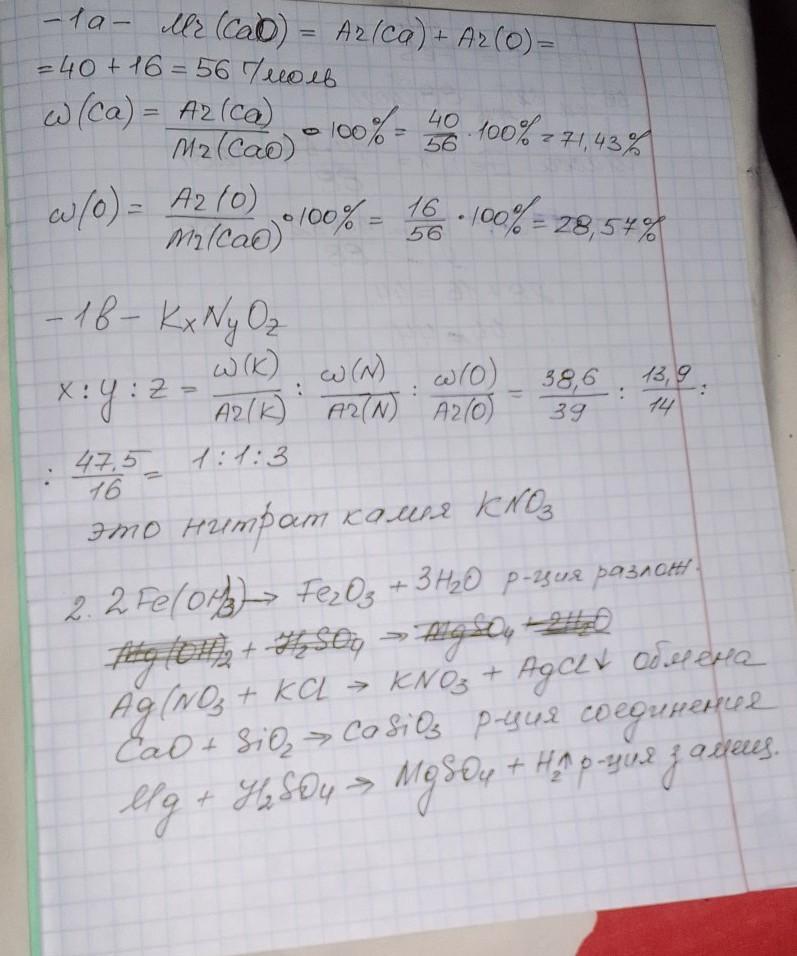 -1а- Mr(CaO) = Ar(Ca) + Ar(O) =
= 40 + 16 = 56 г/моль
ω(Ca) = Ar(Ca)/Mr(CaO) · 100% = 40/56 · 100% = 71,43%
ω(O) = Ar(O)/Mr(CaO) · 100% = 16/56 · 100% = 28,57%
-1в- KxNyOz
x : y : z = ω(K)/Ar(K) : ω(N)/Ar(N) : ω(O)/Ar(O) = 38,6/39 : 13,9/14 :
: 47,5/16 = 1 : 1 : 3
это нитрат калия KNO₃
2. 2Fe(OH)₃ → Fe₂O₃ + 3H₂O р-ция разлож.
Mg(OH)₂ + H₂SO₄ → MgSO₄ + 2H₂O
Ag(NO₃ + KCl → KNO₃ + AgCl↓ обмена
CaO + SiO₂ → CaSiO₃ р-ция соединения
Mg + H₂SO₄ → MgSO₄ + H₂↑ р-ция замещ.